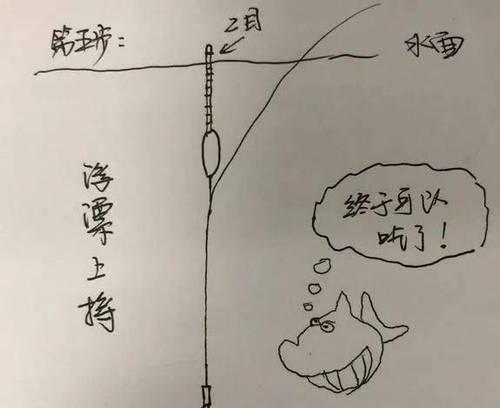 第五步：
2目
水面
浮漂上捋
终于可以
吃了！